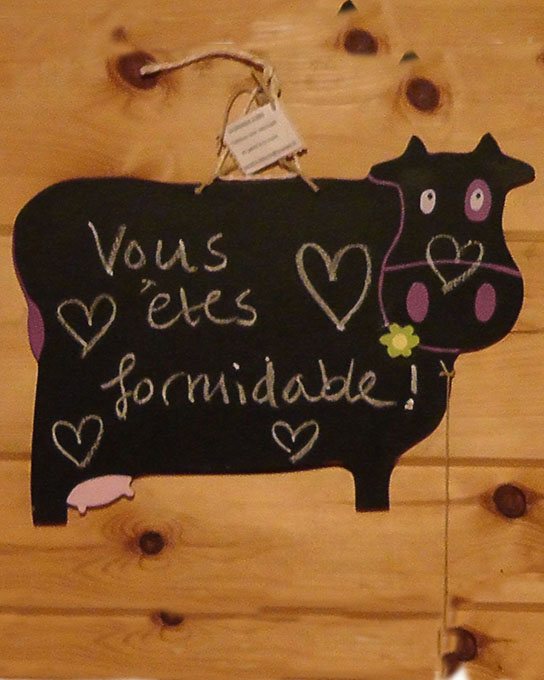 Vous
êtes
formidable !